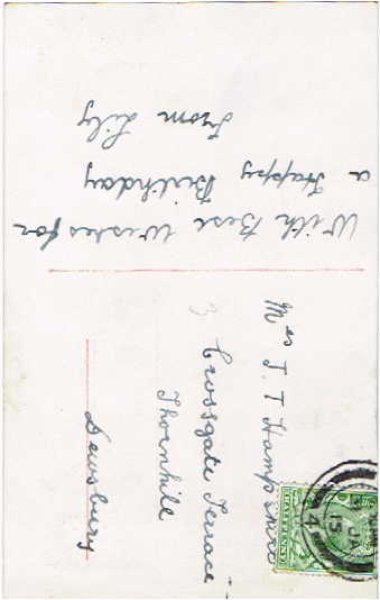 With Best Wishes for
a Happy Birthday
From Lily
Mrs J. T. Hampshire
3
Crossgate Terrace
Thornhill
Dewsbury
HALFPENNY
15
JA
4